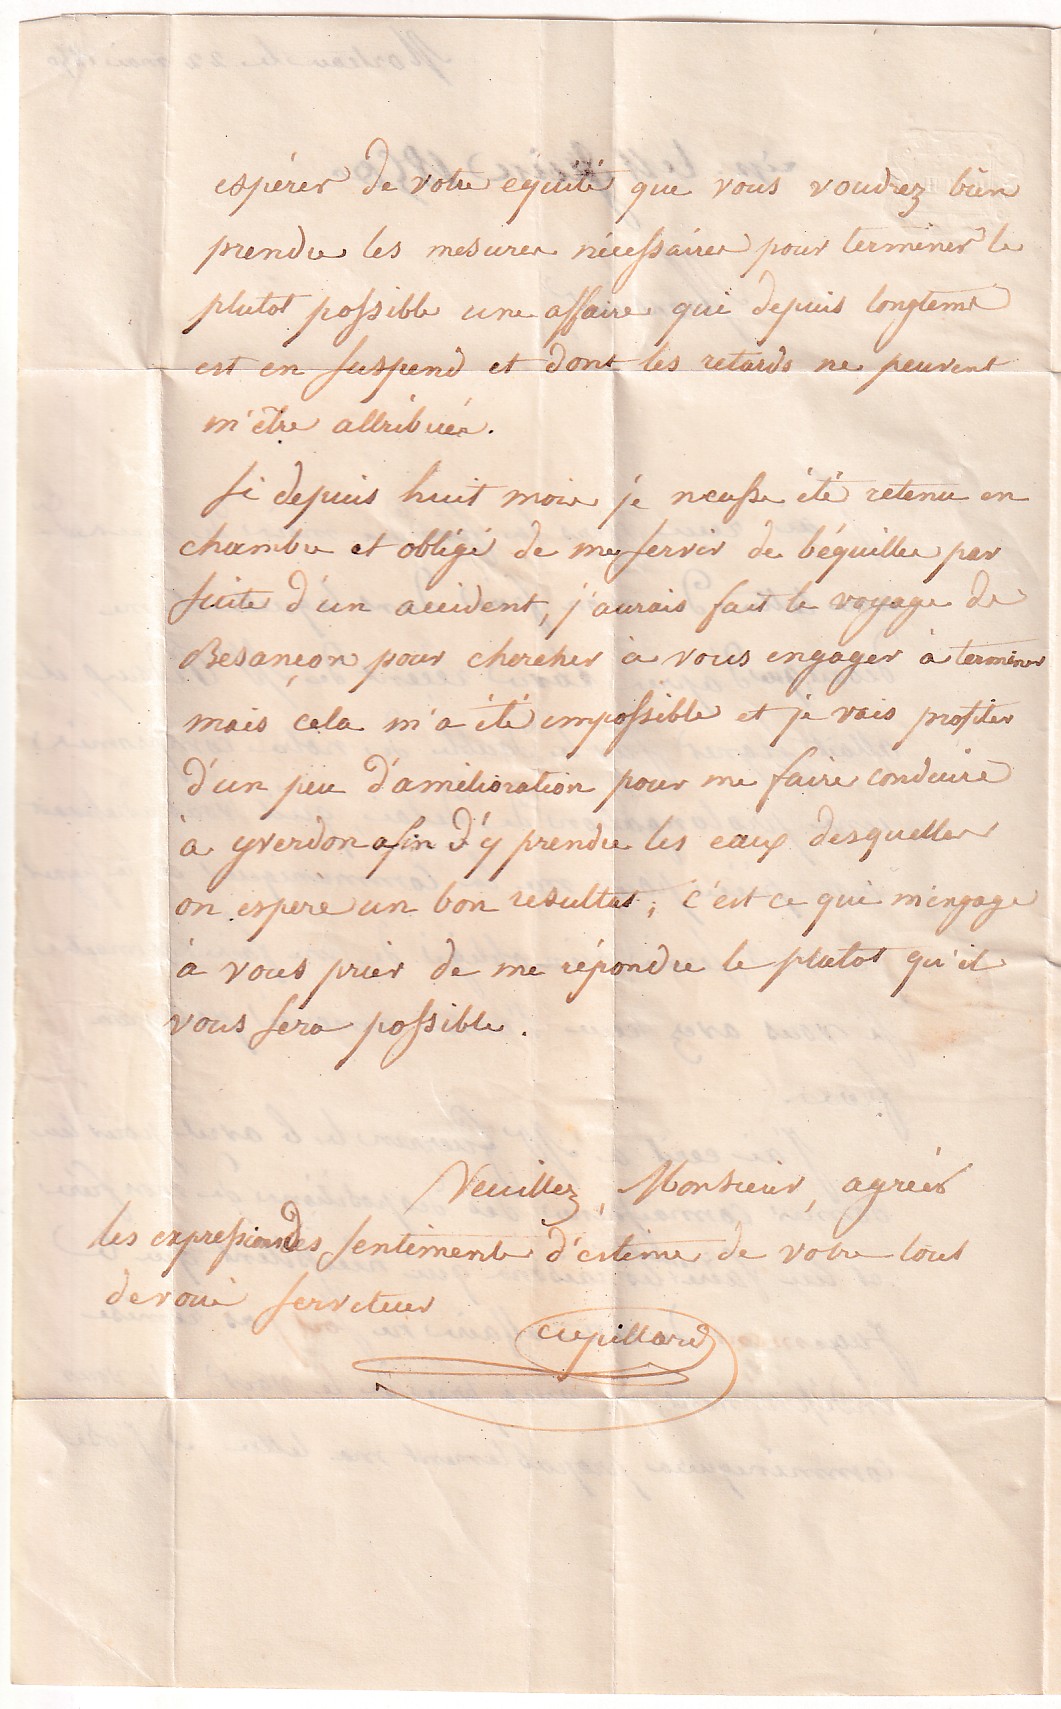 espérer de votre equité que vous voudrez bien
prendre les mesures nécessaires pour terminer le
plutot possible une affaire qui depuis longtems
est en suspend et dont les retards ne peuvent
m'être attribués.
Si depuis huit mois je neusse été retenu en
chambre et obligé de me servir de béquilles par
suite d'un accident, j'aurais fait le voyage de
Besançon pour chercher à vous engager à terminer
mais cela m'a été impossible et je vais profiter
d'un peu d'amélioration pour me faire conduire
à yverdon afin d'y prendre les eaux desquelles
on espere un bon resultat, c'est ce qui m'engage
à vous prier de me répondre le plutot qu'il
vous sera possible.
Veuillez, Monsieur, agréer
les expressions des sentiments d'estime de votre tout
devoué serviteur
Cupillard